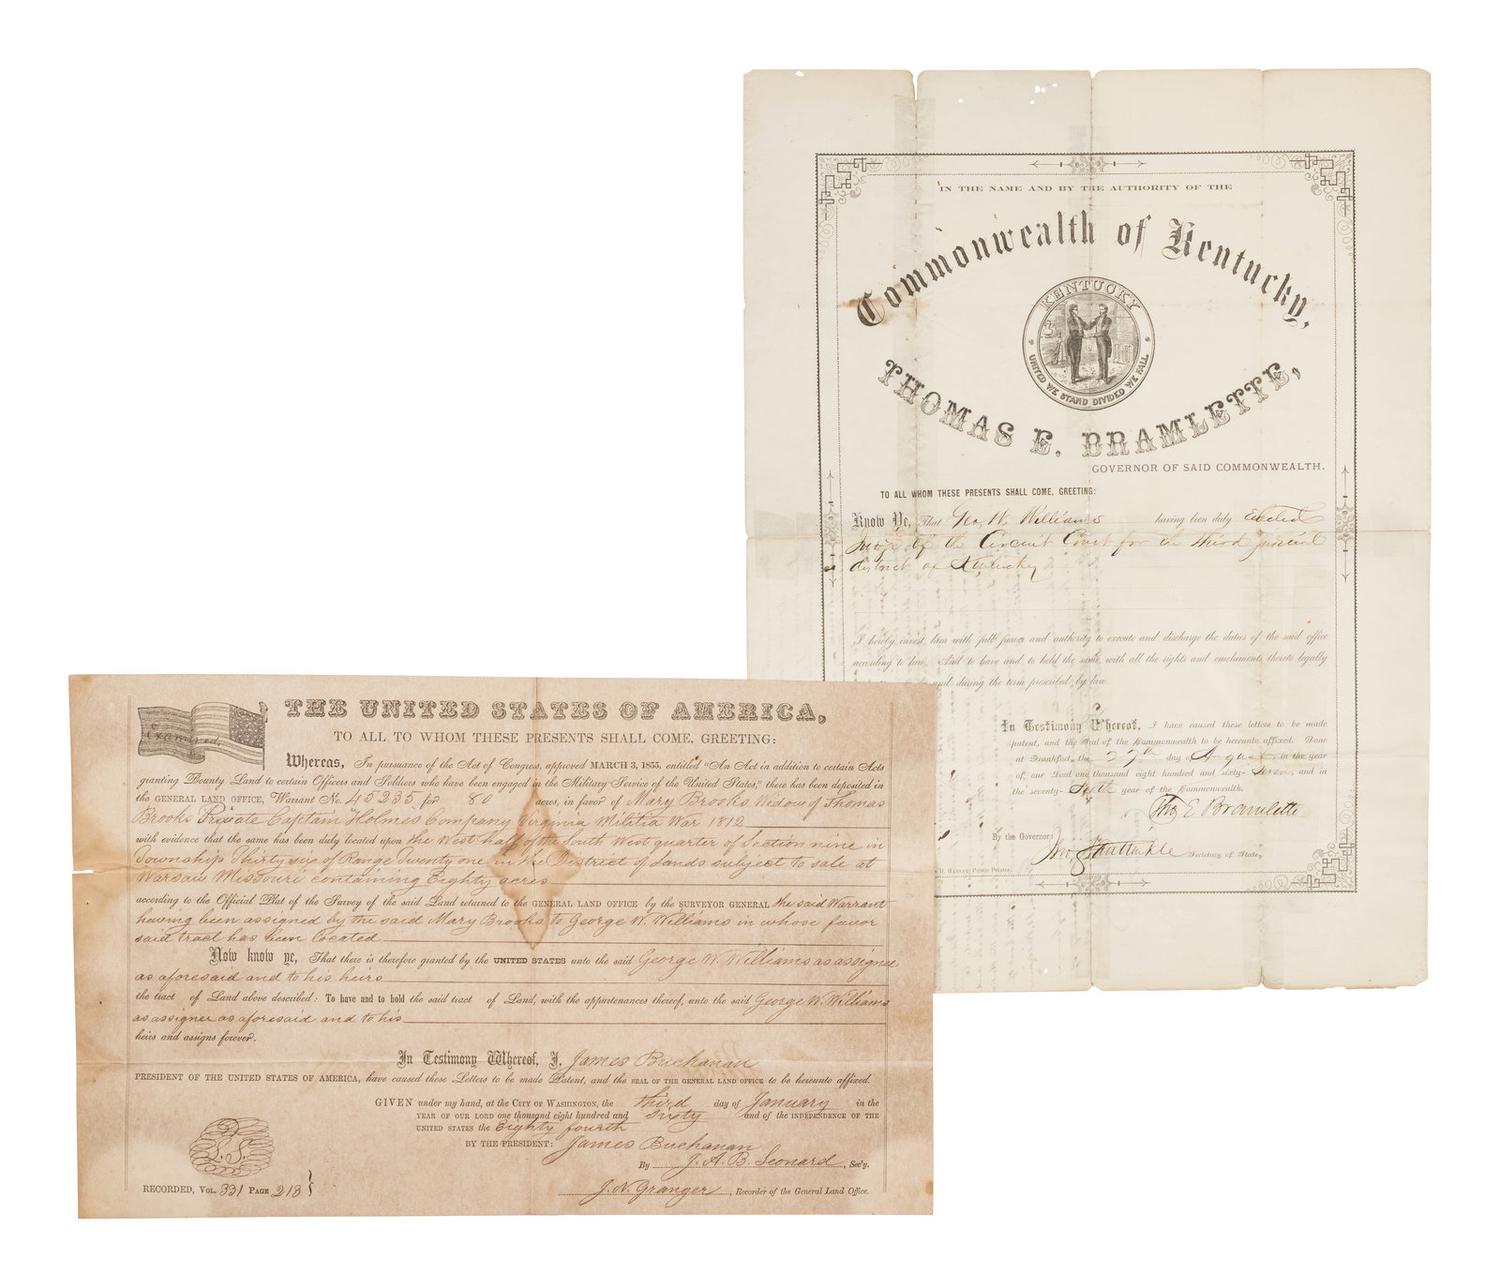 IN THE NAME AND BY THE AUTHORITY OF THE
Commonwealth of Kentucky,
KENTUCKY
UNITED WE STAND DIVIDED WE FALL
THOMAS E. BRAMLETTE,
GOVERNOR OF SAID COMMONWEALTH.
TO ALL WHOM THESE PRESENTS SHALL COME, GREETING:
Know Ye, That Geo. W. Williams having been duly Elected
Judge of the Circuit Court for the third judicial
district of Kentucky
I hereby invest him with full power and authority to execute and discharge the duties of the said office
according to law. And to have and to hold the same, with all the rights and emoluments thereto legally
and during the term prescribed by law.
In Testimony Whereof, I have caused these letters to be made
patent, and the seal of the Kommonwealth to be hereunto affixed. Done
at Frankfort, the 27th day of August in the year
of our Lord one thousand eight hundred and sixty- seven, and in
the seventy- sixth year of the Kommonwealth.
Tho E Bramlette
By the Governor:
Secretary of State,
THE UNITED STATES OF AMERICA,
TO ALL TO WHOM THESE PRESENTS SHALL COME, GREETING:
Examined.
Whereas, In pursuance of the Act of Congress, approved MARCH 3, 1855, entitled "An Act in addition to certain Acts
granting Bounty Land to certain Officers and Soldiers who have been engaged in the Military Service of the United States," there has been deposited in
the GENERAL LAND OFFICE, Warrant No. 45235 for 80 acres, in favor of Mary Brooks Widow of Thomas
Brooks Private Captain Holmes Company Virginia Militia War 1812
with evidence that the same has been duly located upon the West half of the South West quarter of Section nine in
Township Thirty six of Range Twenty one in the District of Lands subject to sale at
Warsaw Missouri containing Eighty acres
according to the Official Plat of the Survey of the said Land returned to the GENERAL LAND OFFICE by the SURVEYOR GENERAL the said Warrant
having been assigned by the said Mary Brooks to George W. Williams in whose favor
said tract has been located
Now know ye, That there is therefore granted by the UNITED STATES unto the said George W. Williams as assignee
as aforesaid and to his heirs
the tract of Land above described: To have and to hold the said tract of Land, with the appurtenances thereof, unto the said George W. Williams
as assignee as aforesaid and to his
heirs and assigns forever.
In Testimony Whereof, I, James Buchanan
PRESIDENT OF THE UNITED STATES OF AMERICA, have caused these Letters to be made Patent, and the SEAL OF THE GENERAL LAND OFFICE to be hereunto affixed.
GIVEN under my hand, at the CITY OF WASHINGTON, the third day of January in the
YEAR OF OUR LORD one thousand eight hundred and Sixty and of the INDEPENDENCE OF THE
UNITED STATES the Eighty fourth
BY THE PRESIDENT: James Buchanan
By J. A. B. Leonard, Sec'y.
L.S.
RECORDED, VOL. 331 PAGE 213
J. N. Granger, Recorder of the General Land Office.